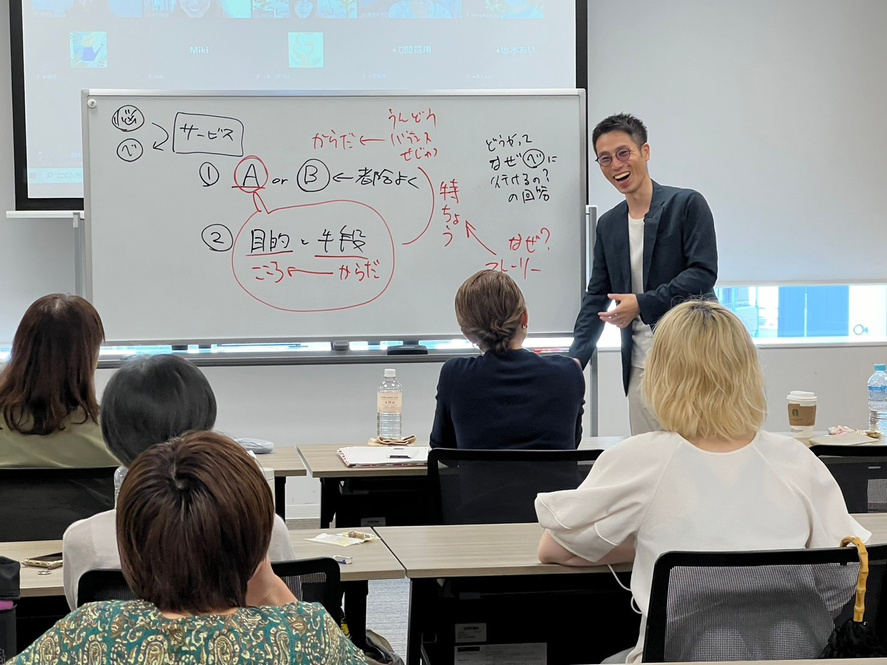 Miki
サービス
べ
① A or B ← 都合よく
② 目的と手段
こころ ← からだ
うんどう
からだ ← バランス
特ちょう
なぜ?
ストーリー
どうやって
なぜべに
行けるの?
の回答